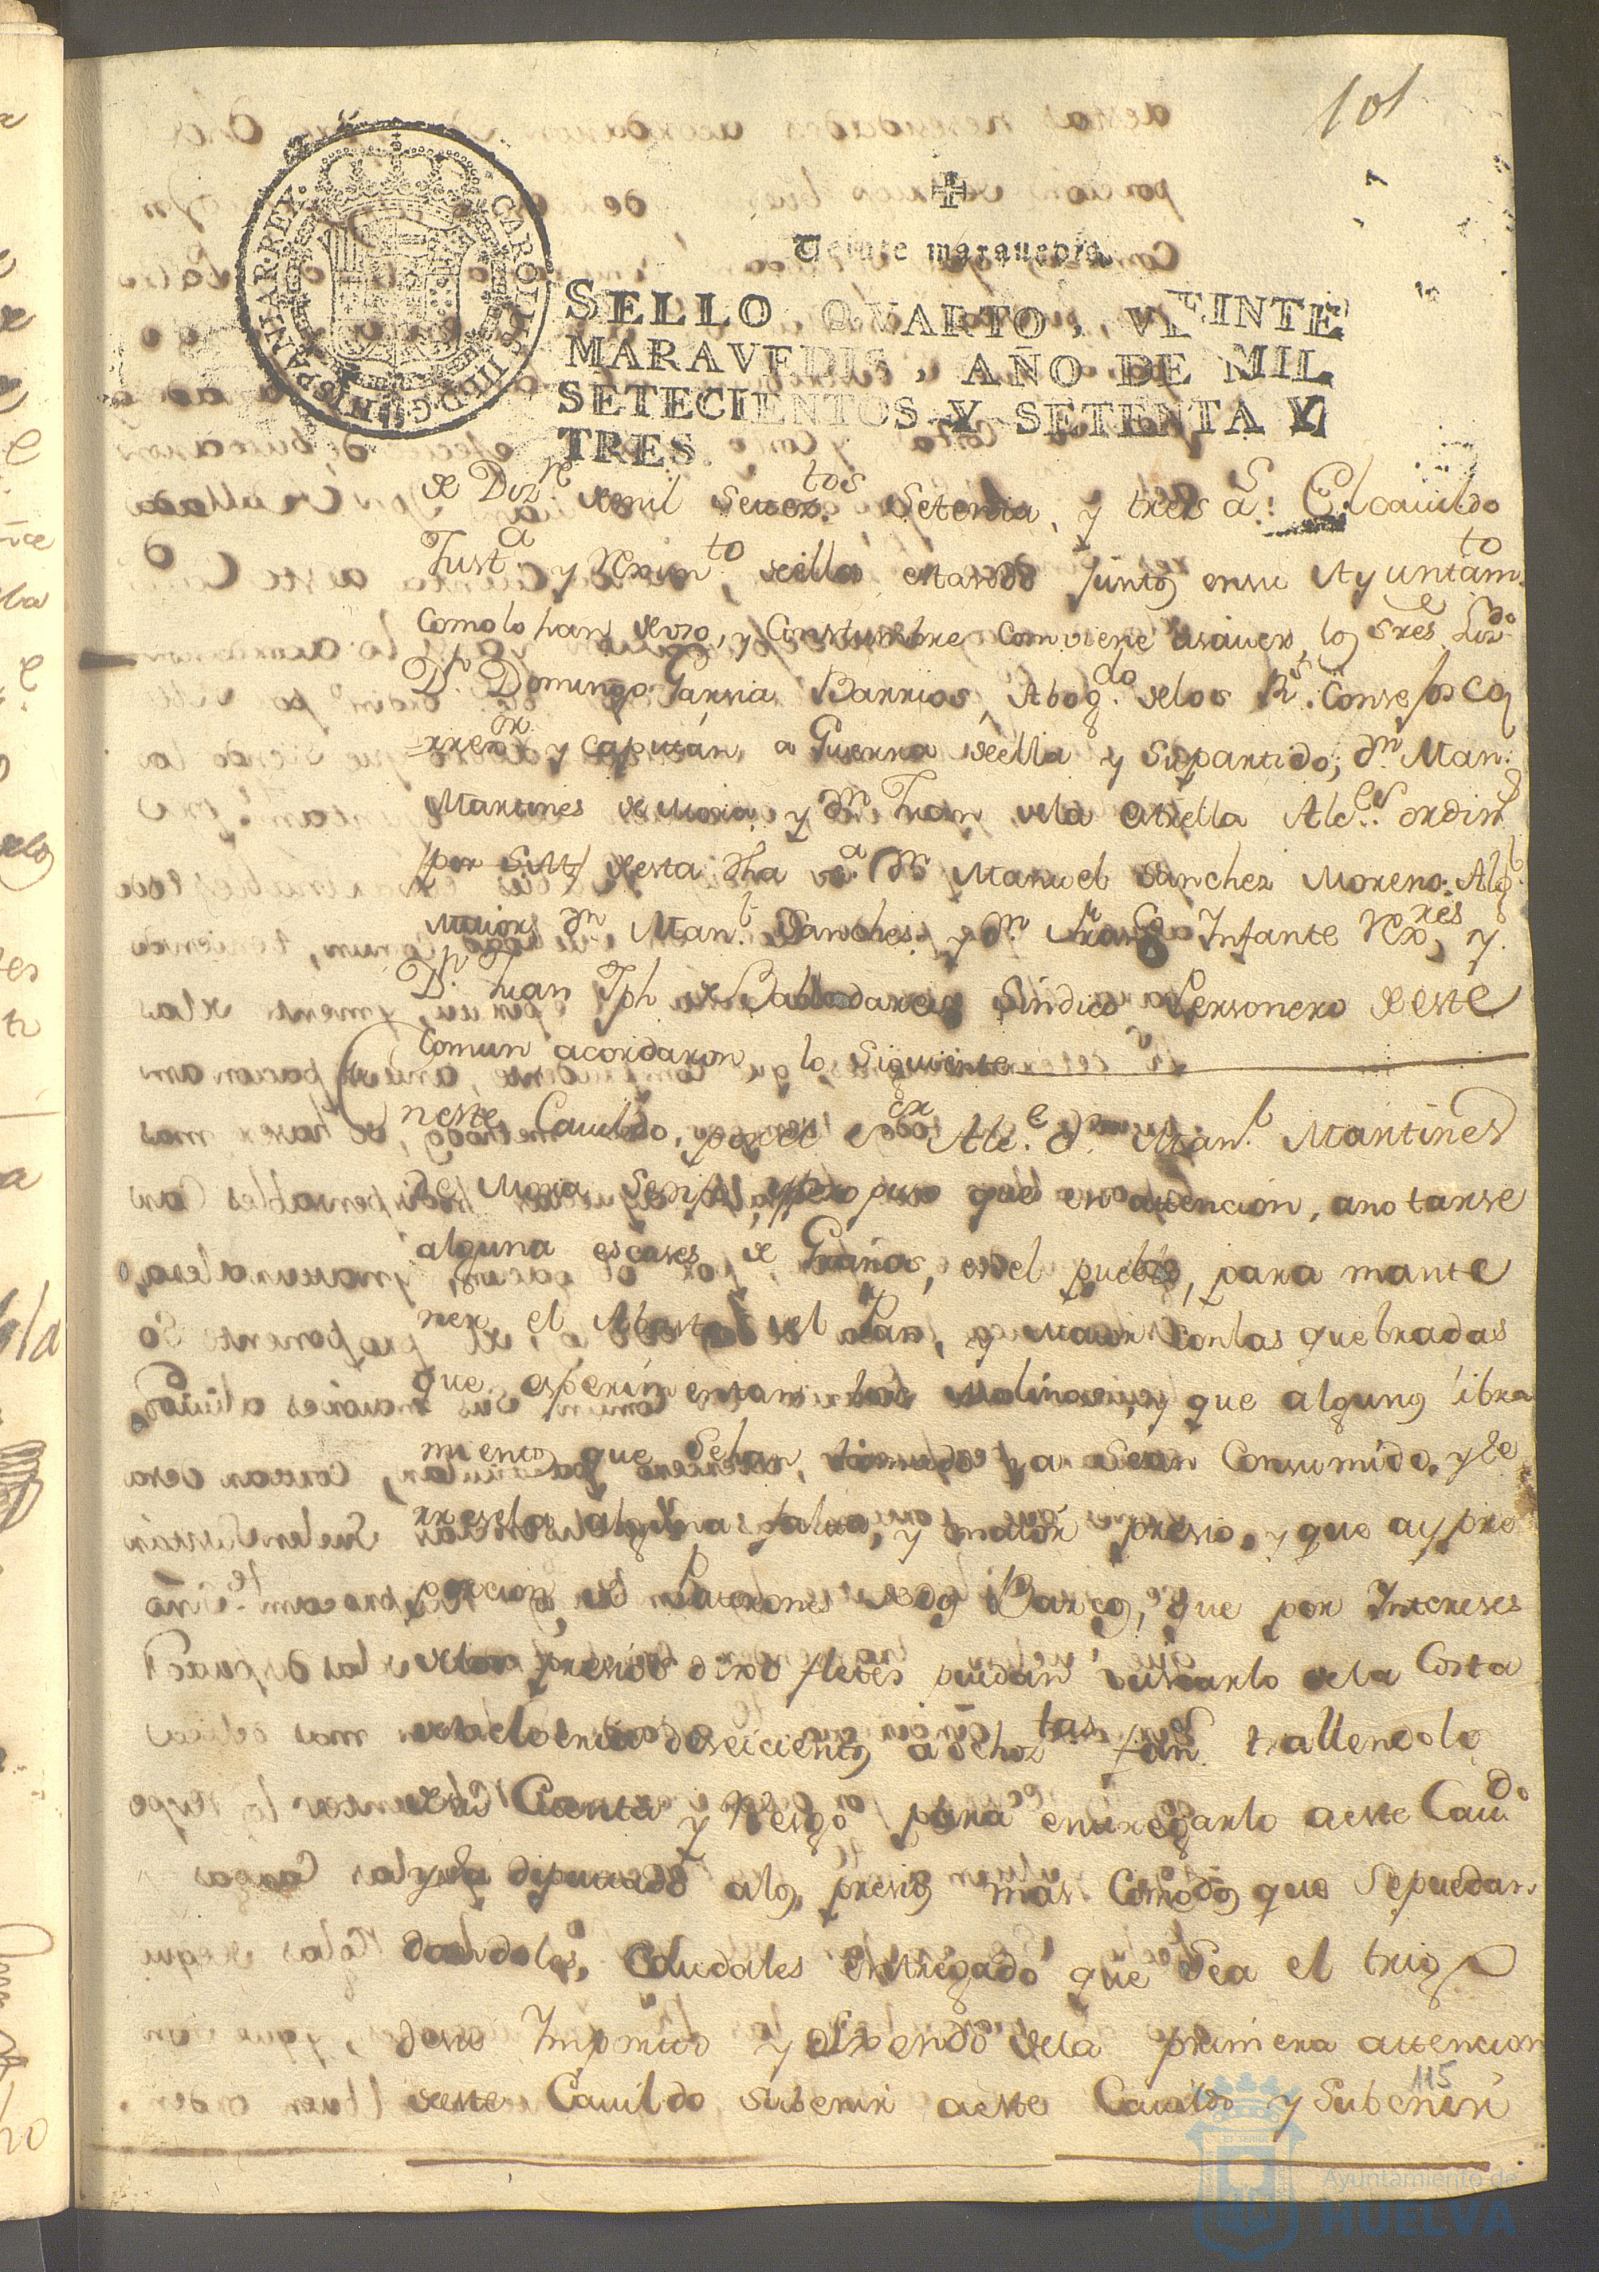 101
Veinte maravedis
SELLO QVARTO, VEINTE
MARAVEDIS, AÑO DE MIL
SETECIENTOS Y SETENTA Y
TRES.
CAROLUS III D.G. HISPANIAR. REX.
de Diz.re de mil Setez.tos Setenta, y tres a.s: El cauildo
Just.a y Rexim.to de ella estando juntos en su Ayuntam.to
como lo han de uso, y Constumbre combiene asauer, los Sres Lizdo.
D.n Domingo Garsia Barrios, Abog.do de los R.s Consejos co
rrex.or y Capitán a Guerra de ella y su partido; d.n Man.l
Martines de Mora, y d.n Juan de la Estrella Alc.es ordin.s
desta dha v.a d.n Manuel Sanchez Moreno Alg.l
Maior d.n Man.l Sanches y d.n Fran.co Infante Rex.res, y
D.n Juan Jph de Balladares Sindico Personero de este
Comun acordaron lo Siguiente
neste Cauildo, por el s.or Alc.e d.n Man.l Martines
de Mora Se propuso que en attencion, a notarse
alguna escases de Granos, en el pueblo, para mante
ner el Abasto del Pan, y maior con las quebradas
que esperimentan los Molinos, y que algunos libra
mientos que Sehan ya Sean Consumido, y Se
rresela alguna falta, y maior presio, y que ay pro
porcion, de Patrones de los Barcos, que por Intereses
de los presios de sus fletes puedan buscarlo de la Costa
de seicientos a ochoz.tas fan.s trallendolo
de su Cuenta y Riesgo para entregarlo a este Cau.do
y sus diputados a los presios mas Comodos que Sepuedan
dandoles, Caudales entregado que Sea el trigo
de su Importe y siendo de la primera attencion
de este Cauildo subenir a este Cauildo y Subenir
115
Ayuntamiento de
HUELVA